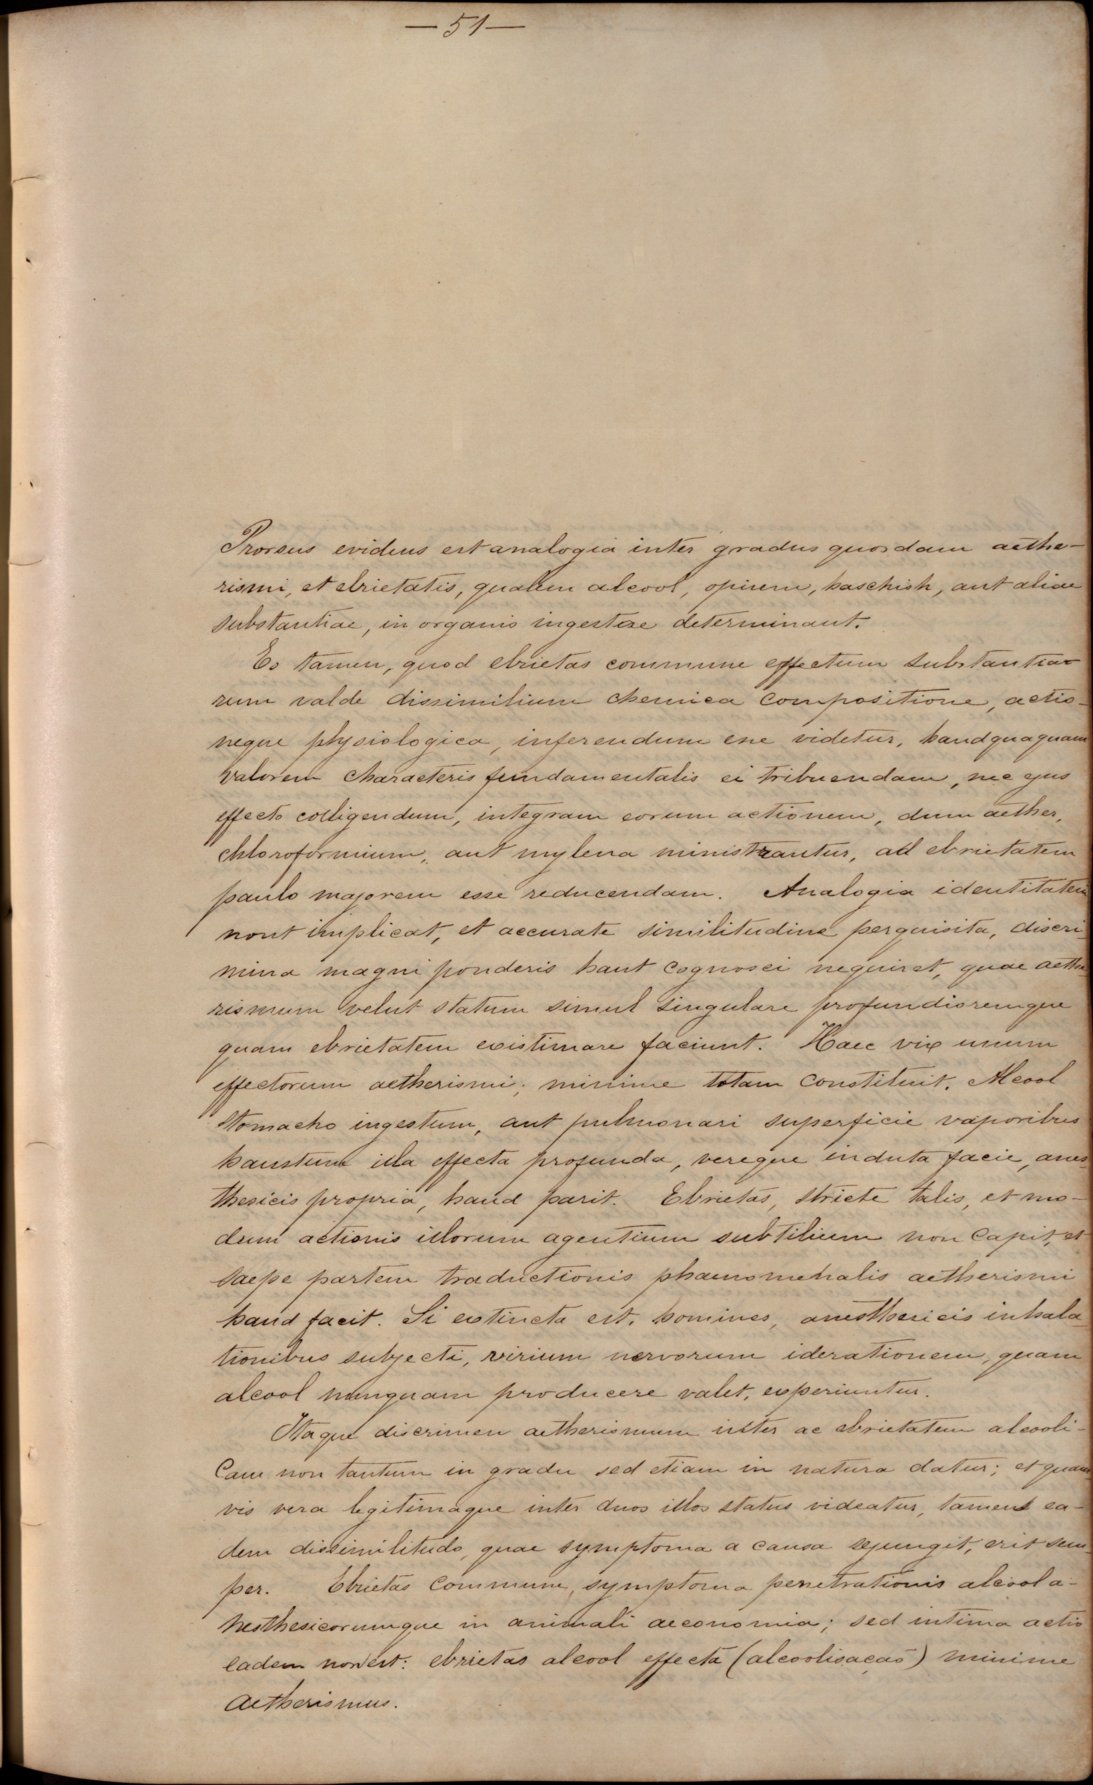 — 51 —
Prorsus evidens est analogia inter gradus quosdam aethe-
rismi, et ebrietatis, qualem alcool, opium, haschish, aut aliae
substantiae, in organis ingestae determinant.
Eo tamen, quod ebrietas commune effectum substantia-
rum valde dissimilium chemica compositione, actio-
neque physiologica, inferendum esse videtur, haudquaquam
valorem characteris fundamentalis ei tribuendam, nec ejus
effecto colligendum, integram eorum actionem, dum aether,
chloroformium, aut mylena ministrantur, ad ebrietatem
paulo majorem esse reducendam. Analogia identitatem
nont implicat, et accurate similitudine perquisita, discri-
mina magni ponderis haut cognosci nequiret, quae aethe
rismum velut statum simul singulare profundioremque
quam ebrietatem existimare faciunt. Haec vix unum
effectorum aetherismi; minime totam constituit. Alcool
stomacho ingestum, aut pulmonari superficie vaporibus
haustum illa effecta profunda, vereque induta facie, anes-
thesicis propria, haud parit. Ebrietas, stricte talis, et mo-
dum actionis illorum agentium subtilium non capit, et
saepe partem traductionis phaenomenalis aetherismi
haud facit. Si extincta est, homines, anesthesicis inhala
tionibus subjecti, virium nervorum iderationem, quam
alcool nunquam producere valet, experiuntur.
Itaque discrimen aetherismum inter ac ebrietatem alcooli-
cam non tantum in gradu sed etiam in natura datur; et quam
vis vera legitimaque inter duos illos status videatur, tamen ea-
dem dissimilitudo, quae symptoma a causa sejungit, erit sem-
per. Ebrietas commune, symptoma penetrationis alcool a-
nesthesicorumque in animali aeconomia; sed intima actio
eadem non est: ebrietas alcool effecta (alcoolisação) minime
aetherismus.